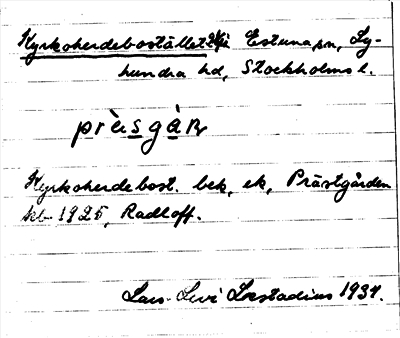 Kyrkoherdebostället i Estuna sn, Ly-
hundra hd, Stockholms l.
präsgàr
Kyrkoherdebost. bek, ek, Prästgården
kb 1925, Radloff.
Lars-Levi Læstadius 1937.